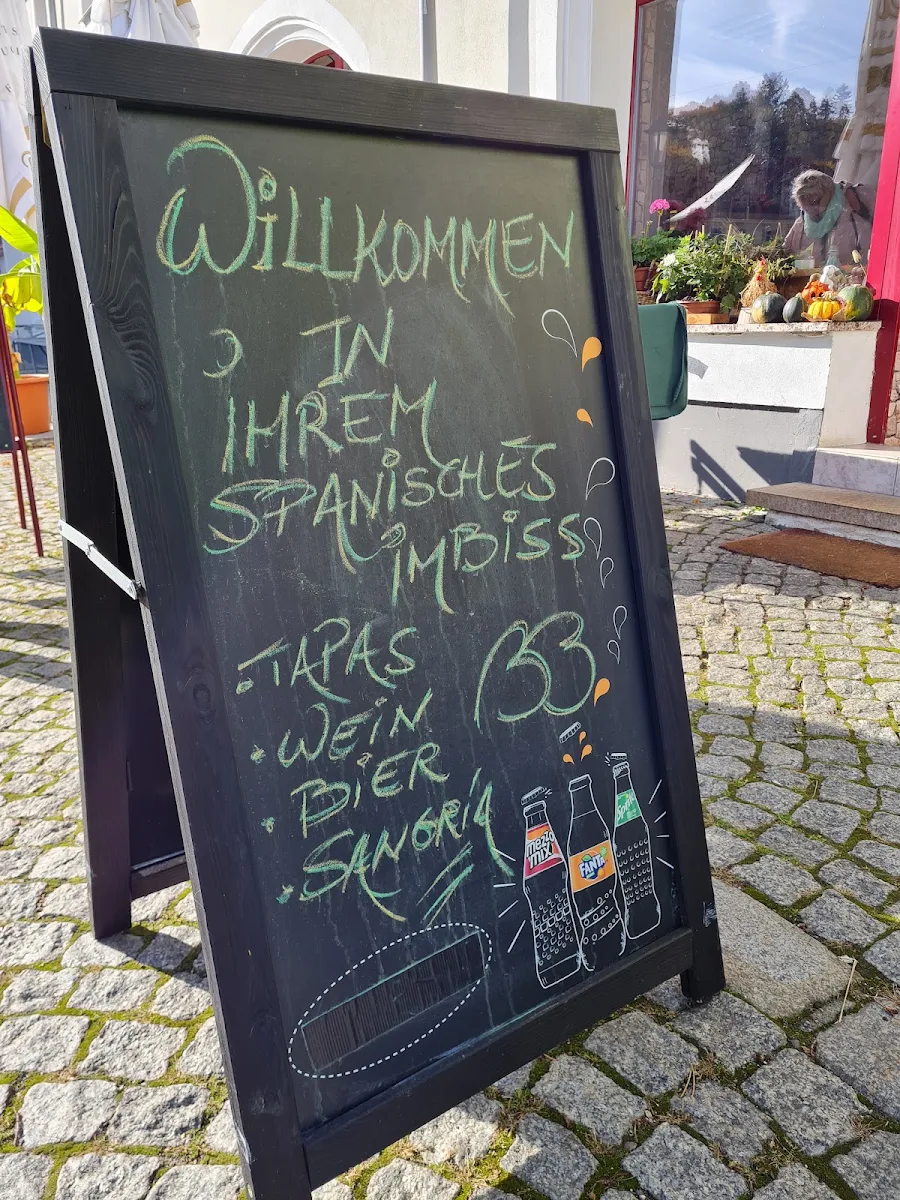 WiLLKOMMEN
IN
IHREM
SPANiSCHES
iMBiSS
• TAPAS
• WEiN
• BiER
• SANGRiA
mezzo
mix
FANTA
Sprite